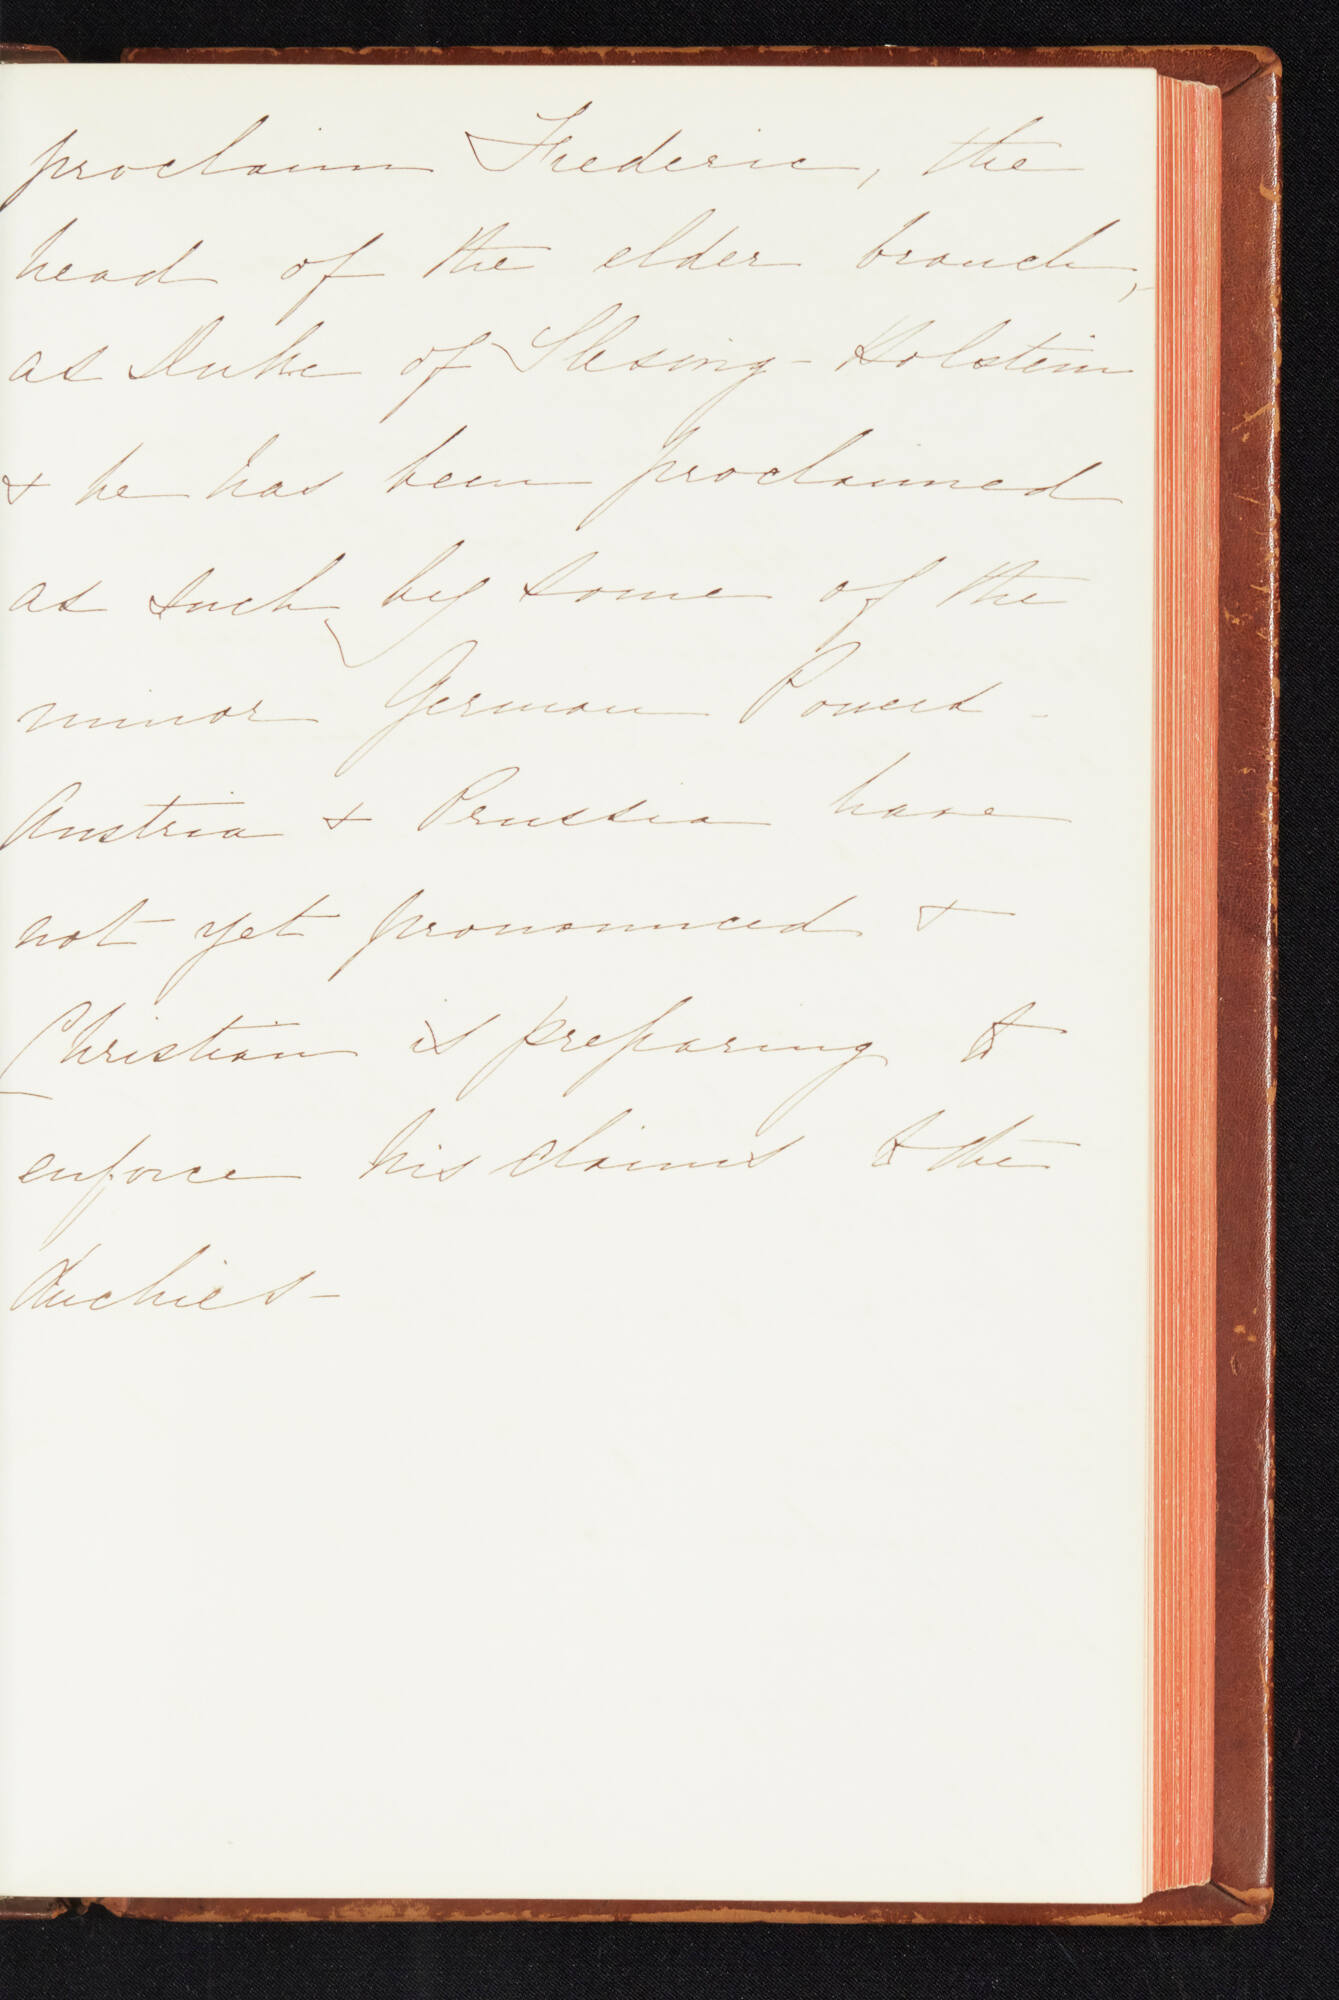 proclaim Frederic, the
head of the elder branch,
as Duke of Slesvig-Holstein
& he has been proclaimed
as such by some of the
minor German Powers -
Austria & Prussia have
not yet pronounced &
Christian is preparing to
enforce his claims to the
duchies -